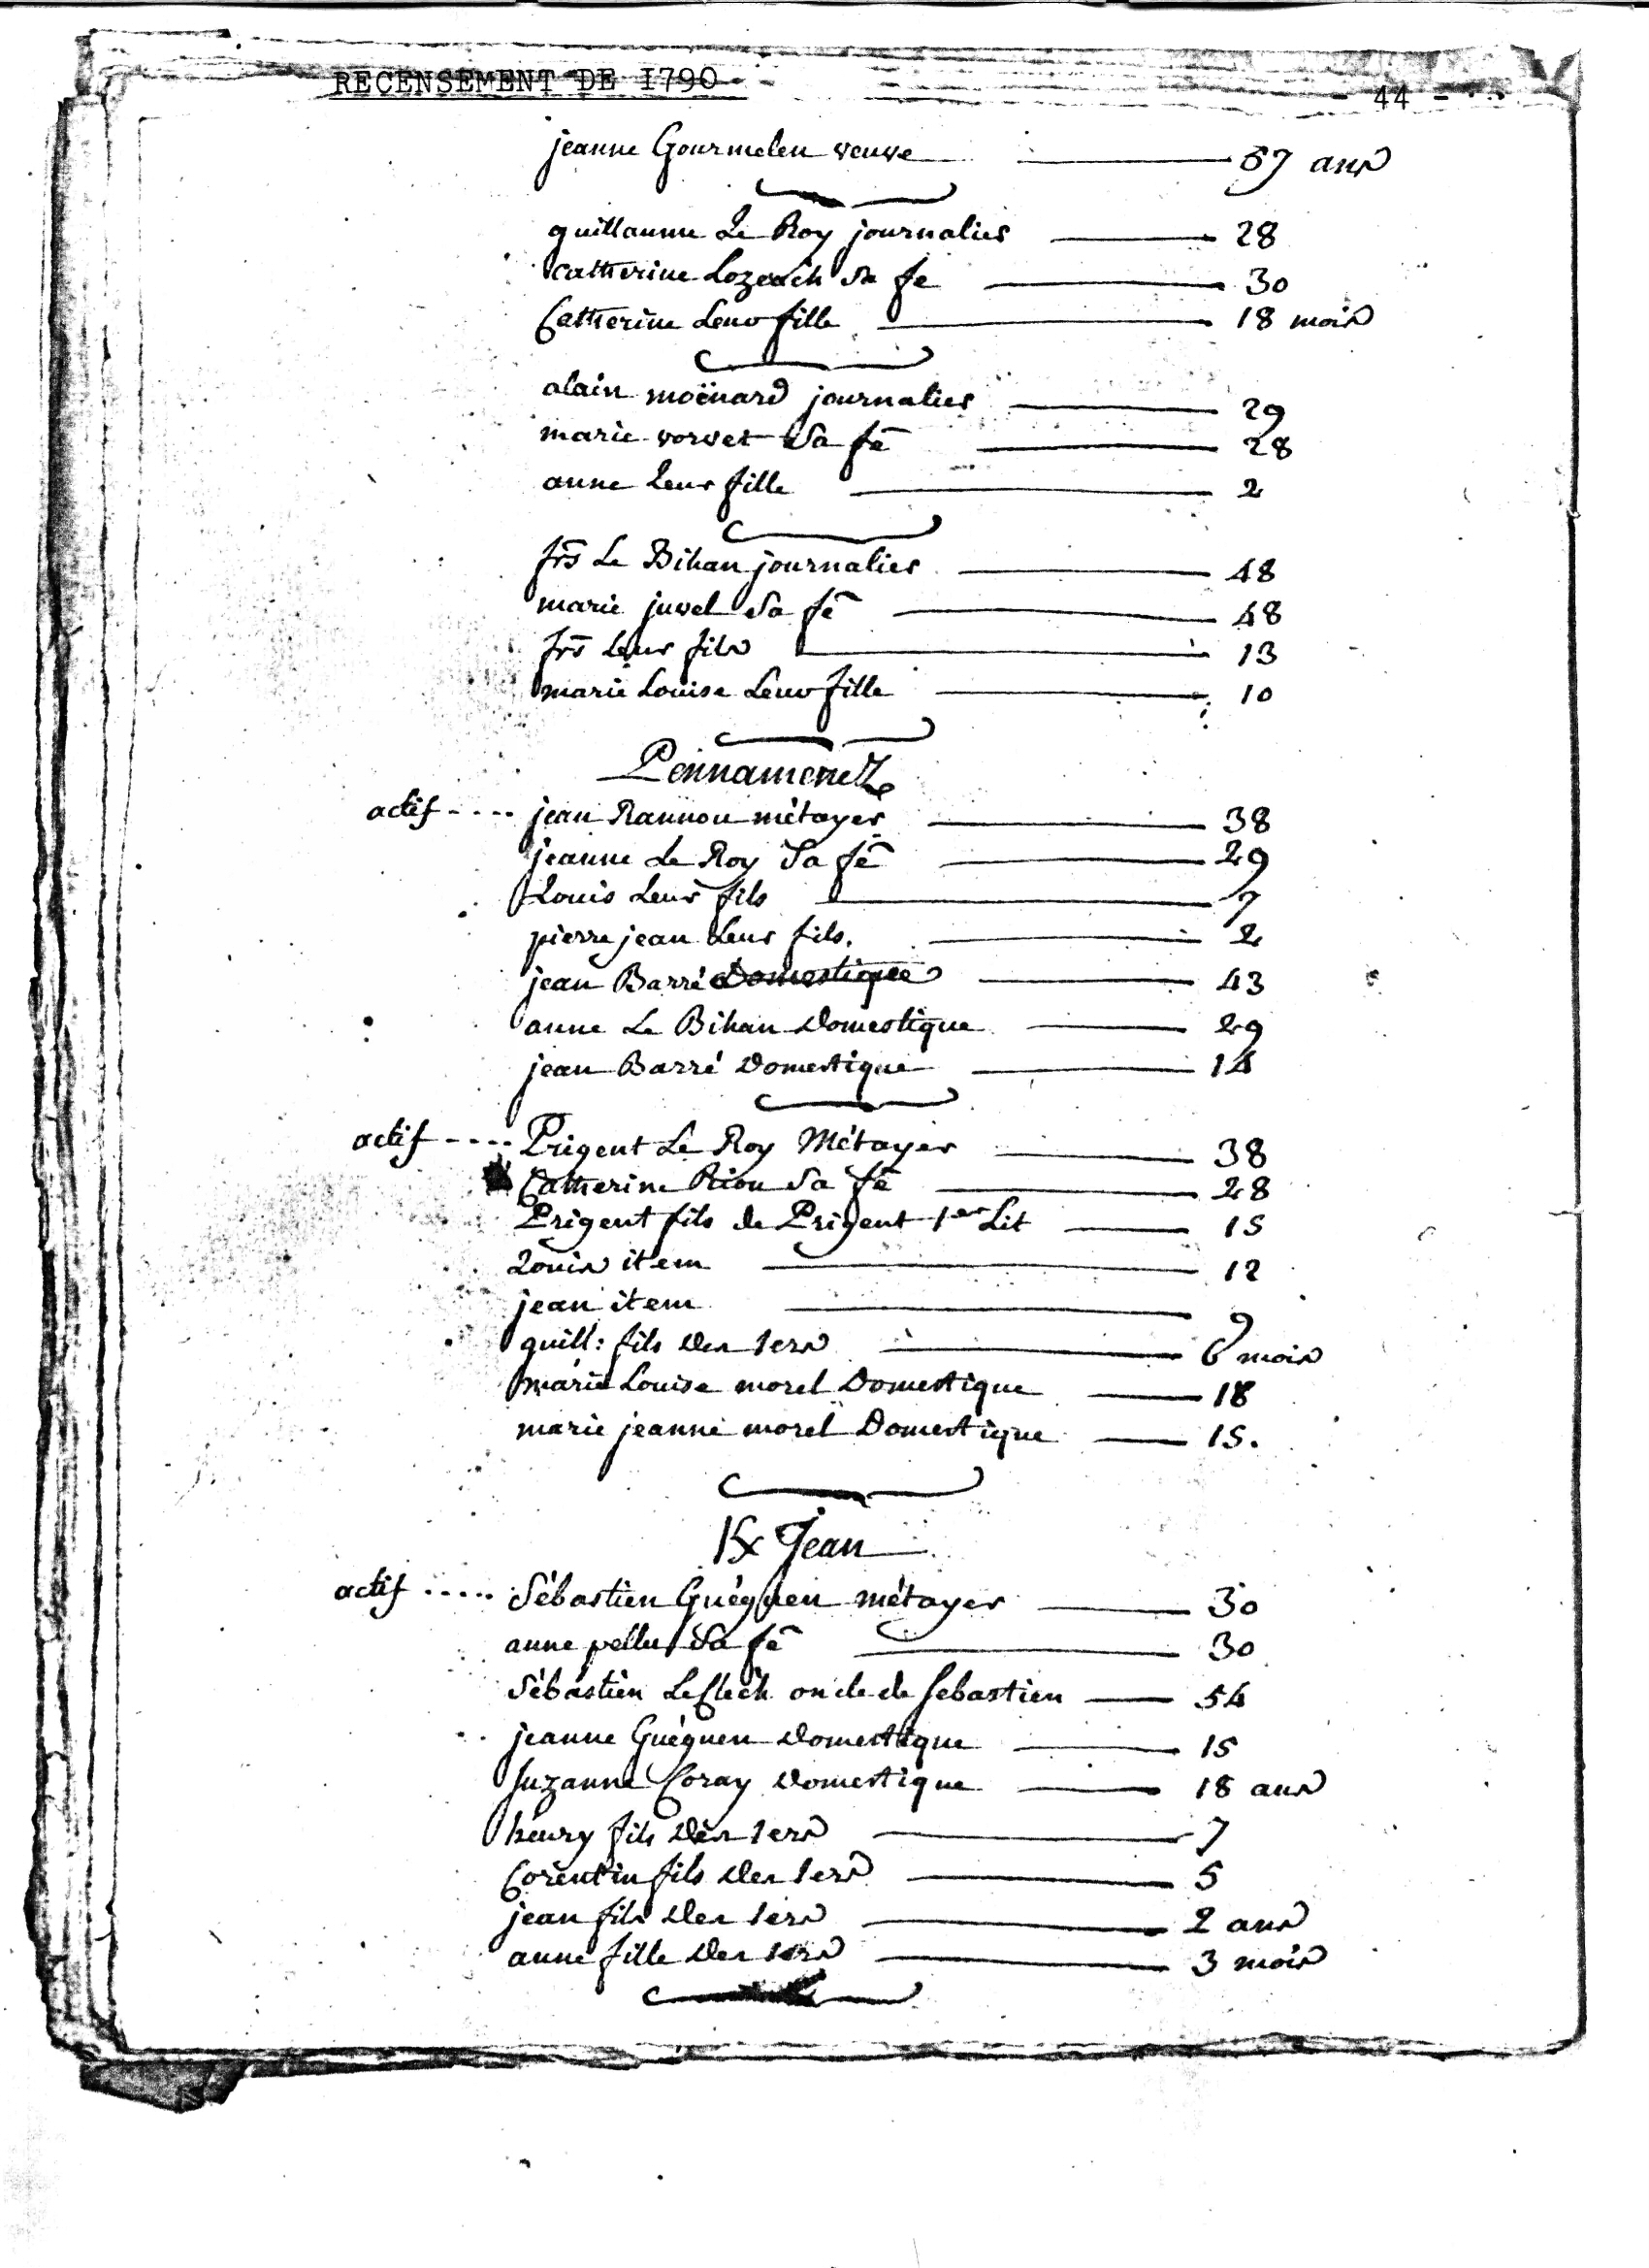 RECENSEMENT DE I790
- 44 -
jeanne Gourmelen veuve 57 ans
guillaume Le Roy journalier 28
Catherine Lozeach Sa fe 30
Catherine Leur fille 18 mois
alain moënard journalier 29
marie vorvet Sa fē 28
anne Leur fille 2
frs̄ Le Bihan journalier 48
marie juvel Sa fē 48
frs̄ Leur fils 13
marie Louise Leur fille 10
Pennamenez
actif .... jean Rannou métayer 38
jeanne Le Roy Sa fē 29
Louis Leur fils 7
pierre jean Leur fils. 2
jean Barré Domestique 43
anne Le Bihan Domestique 29
jean Barré Domestique 14
actif .... Prigent Le Roy Métayer 38
Catherine Riou Sa fē 28
Prigent fils de Prigent 1er Lit 15
Louis item 12
jean item 9
guill: fils Des 1ers 6 mois
marie Louise morel Domestique 18
marie jeanne morel Domestique 15.
Kx Jean
actif ..... Sébastien Guéguen métayer 30
anne pellus Sa fē 30
Sébastien LeCléch oncle de Sebastien 54
jeanne Guéguen Domestique 15
Suzanne Coray Domestique 18 ans
henry fils Des 1ers 7
Corentin fils Des 1ers 5
jean fils Des 1ers 2 ans
anne fille Des 1ers 3 mois